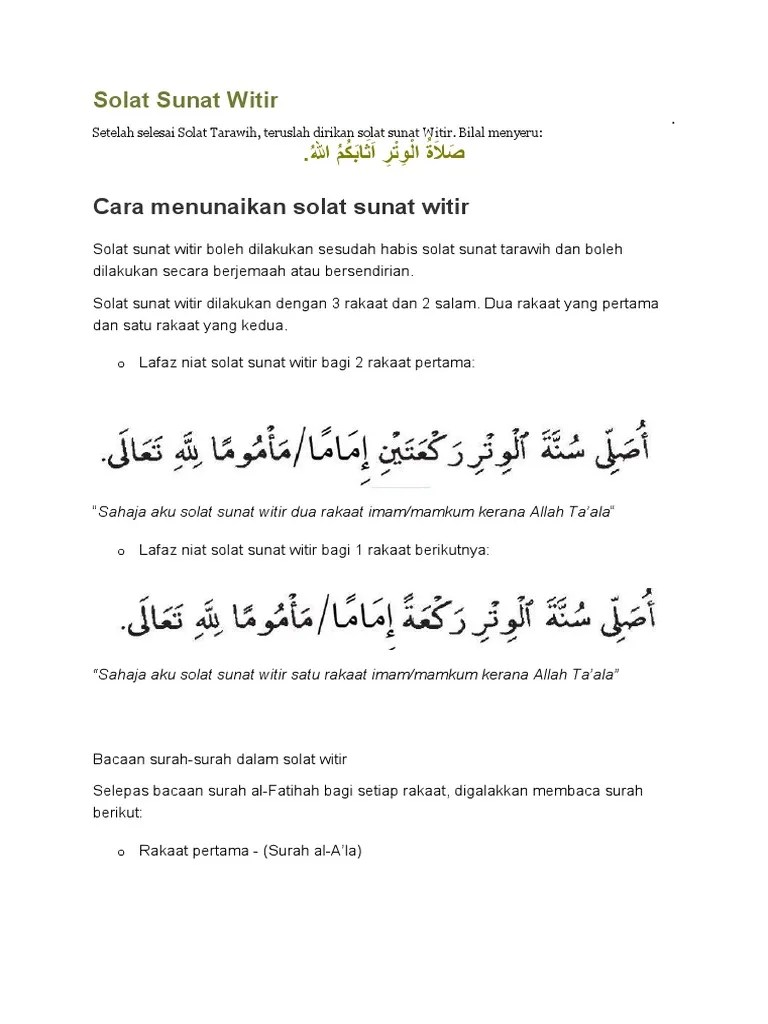 Solat Sunat Witir
.
Setelah selesai Solat Tarawih, teruslah dirikan solat sunat Witir. Bilal menyeru:
صَلاَةُ الْوِتْرِ اَثَابَكُمُ اللهُ.
Cara menunaikan solat sunat witir
Solat sunat witir boleh dilakukan sesudah habis solat sunat tarawih dan boleh
dilakukan secara berjemaah atau bersendirian.
Solat sunat witir dilakukan dengan 3 rakaat dan 2 salam. Dua rakaat yang pertama
dan satu rakaat yang kedua.
o Lafaz niat solat sunat witir bagi 2 rakaat pertama:
أُصَلِّى سُنَّةَ ٱلْوِتْرِ رَكْعَتَيْنِ إِمَامًا/مَأْمُومًا لِلَّهِ تَعَالَى.
“Sahaja aku solat sunat witir dua rakaat imam/mamkum kerana Allah Ta’ala“
o Lafaz niat solat sunat witir bagi 1 rakaat berikutnya:
أُصَلِّى سُنَّةَ ٱلْوِتْرِ رَكْعَةً إِمَامًا/مَأْمُومًا لِلَّهِ تَعَالَى.
“Sahaja aku solat sunat witir satu rakaat imam/mamkum kerana Allah Ta’ala”
Bacaan surah-surah dalam solat witir
Selepas bacaan surah al-Fatihah bagi setiap rakaat, digalakkan membaca surah
berikut:
o Rakaat pertama - (Surah al-A’la)